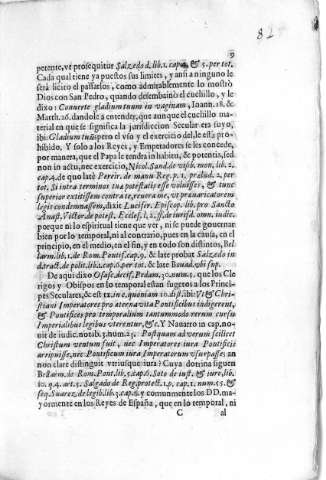 9
82
petente, vt prosequitur Salzedo d. lib. 1. cap. 4. & 5. per tot.
Cada qual tiene ya puestos sus limites, y ansi a ninguno le
serà licito el passarlos, como admirablemente lo mostrò
Dios con San Pedro, quando desembainò el cuchillo, y le
dixo: Conuerte gladium tuum in vaginam, Ioann. 18. &
Matth. 26. dandole a entender, que aunque el cuchillo mate-
rial en que se significa la jurisdiccion Secular era suyo,
ibi: Gladium tuũ, pero el vso y el exercicio del, le està pro-
hibido. Y solo a los Reyes, y Emperadores se les concede,
por manera, que el Papa le tendra in habitu, & potentia, sed
non in actu, nec exercicio, Nicol. Sand. de visib. mon. lib. 2.
cap. 4. de quo latè Pereir. de manu Reg. p. 1. prælud. 2. per
tot. Si intra terminos tua potestatis esse voluisses, & tunc
superior extitissem contra te, reuera me, vt præuaricatorem
legis condemnassem, dixit Lucifer. Episcop. lib. pro Sancto
Anast. Victor. de potest. Eccles. l. 2. ff. de iurisd. omn. iudic.
porque ni lo espiritual tiene que ver, ni se puede gouernar
bien por lo temporal, ni al contrario, pues en la causa, en el
principio, en el medio, en el fin, y en todo son distintos, Bel-
larm. lib. 1. de Rom. Pontif. cap. 9. & late probat Salzedo in
d. tract. de polit. lib. 1. cap. 6. per tot. & late Bouad. vbi sup.
De aqui dixo Osasc. decis. Pedam. 30. num. 5. que los Cle-
rigos y Obispos en lo temporal estan sugetos a los Princi-
pes Seculares, & est tx. in c. quoniam 10. dist. ibi: Vt & Chri-
stiani Imperatores pro æterna vita Pontificibus indigerent,
& Pontifices pro temporalium tantummodo rerum cursu
Imperialibus legibus vterentur, & c. Y Nauarro in cap. nouit
de iudic. notab. 3. num. 23. Postquam ad verum scilicet
Christum ventum fuit, nec Imperatores iura Pontificij
arripuisse, nec Pontificem iura Imperatorum vsurpasse; an
non clarè distinguit vtriusque iura? Cuya dotrina siguen
Bellarm. de Rom. Pont. lib. 5. cap. 6. Soto de iust. & iure, lib.
10. q. 4. art. 5. Salgado de Reg. protect. 1. p. cap. 1. num. 55. &
seq. Suarez. de legib. lib. 3. cap. 6. y comunmente los DD. ma-
yormente en los Reyes de España, que en lo temporal, ni
C al